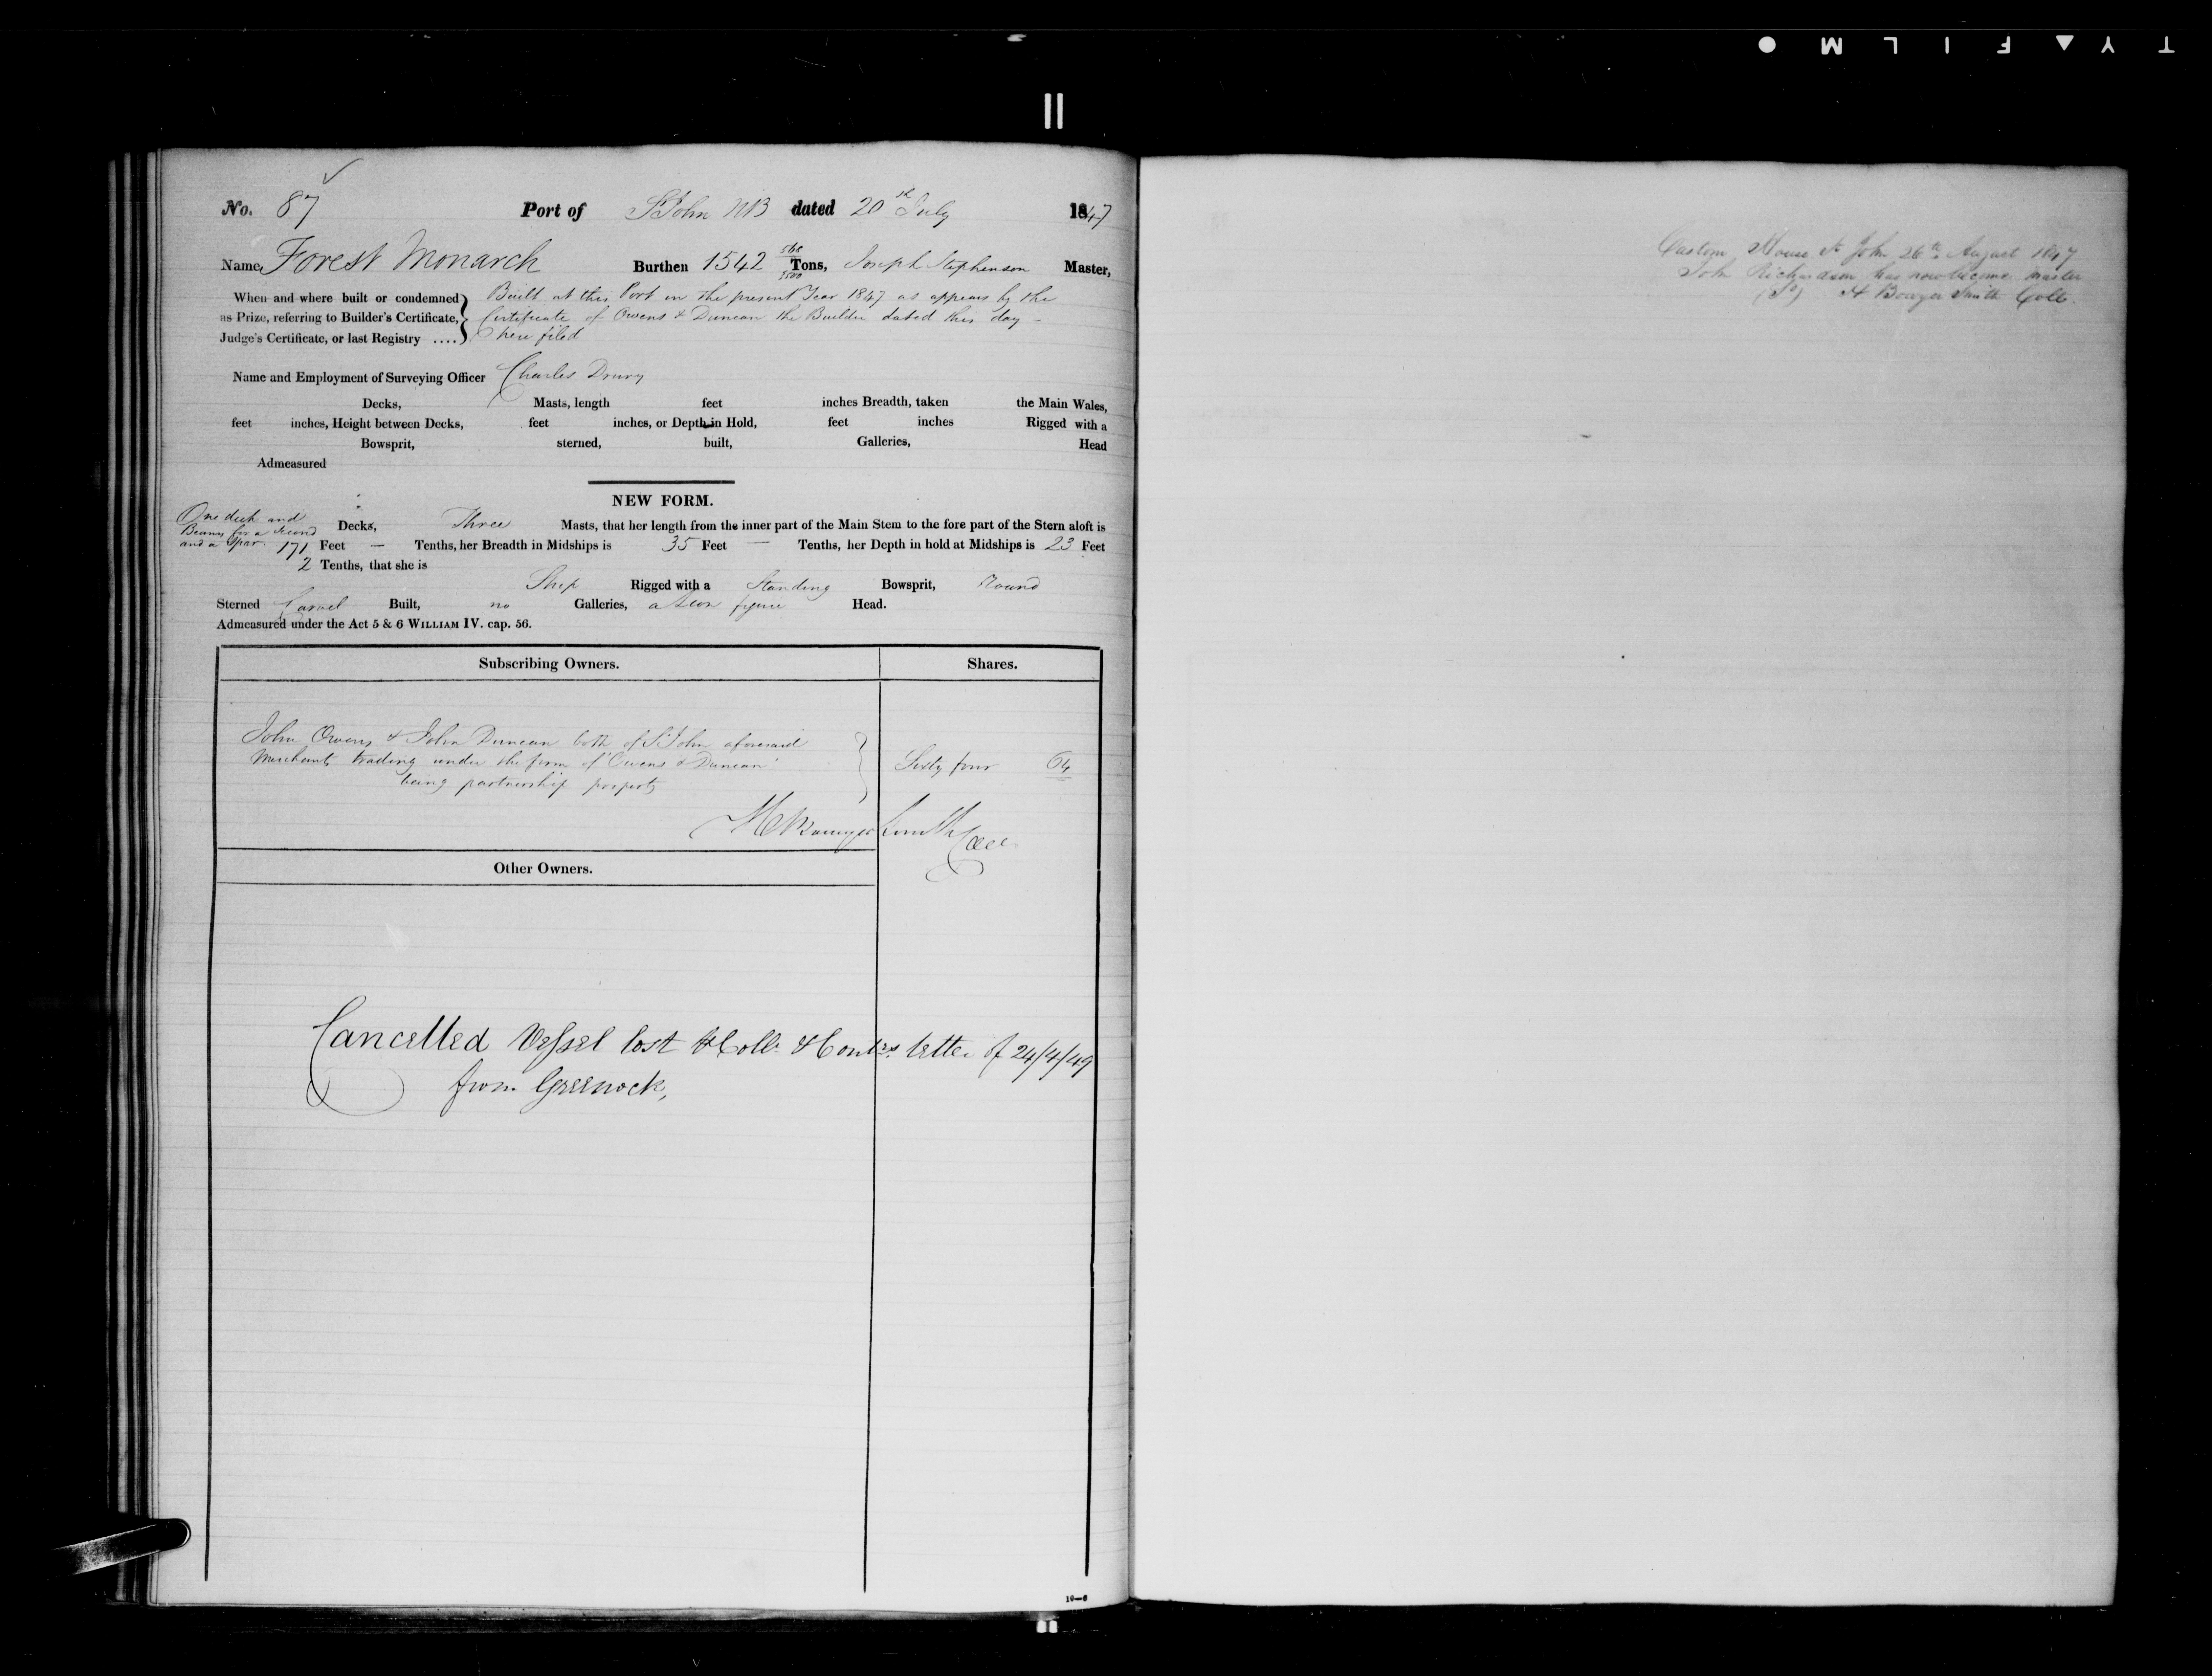 TY▲FILM●
No. 87 Port of St John NB dated 20th July 1847
Name Forest Monarch Burthen 1542 Tons, Joseph Stephenson Master,
When and where built or condemned Built at this Port in the present Year 1847 as appears by the
as Prize, referring to Builder's Certificate, Certificate of Owens & Duncan the Builder dated this day -
Judge's Certificate, or last Registry .... here filed
Name and Employment of Surveying Officer Charles Drury
Decks, Masts, length feet inches Breadth, taken the Main Wales,
feet inches, Height between Decks, feet inches, or Depth in Hold, feet inches Rigged with a
Bowsprit, sterned, built, Galleries, Head
Admeasured
NEW FORM.
One deck and
Beams for a second
and a Spar. Decks, Three Masts, that her length from the inner part of the Main Stem to the fore part of the Stern aloft is
171 Feet — Tenths, her Breadth in Midships is 35 Feet — Tenths, her Depth in hold at Midships is 23 Feet
2 Tenths, that she is
Ship Rigged with a Standing Bowsprit, Round
Sterned Carvel Built, no Galleries, a figure Head.
Admeasured under the Act 5 & 6 WILLIAM IV. cap. 56.
Subscribing Owners. Shares.
John Owens & John Duncan both of St John aforesaid
Merchants trading under the firm of "Owens & Duncan" Sixty four 64
being partnership property
H Bowyer Smith Coll
Other Owners.
Cancelled Vessel lost Coll & Contrs letter of 24/4/49
from Greenock,
10—6
Custom House St John 26th August 1847
John Richardson has now become master
(Sd) H Bowyer Smith Coll.